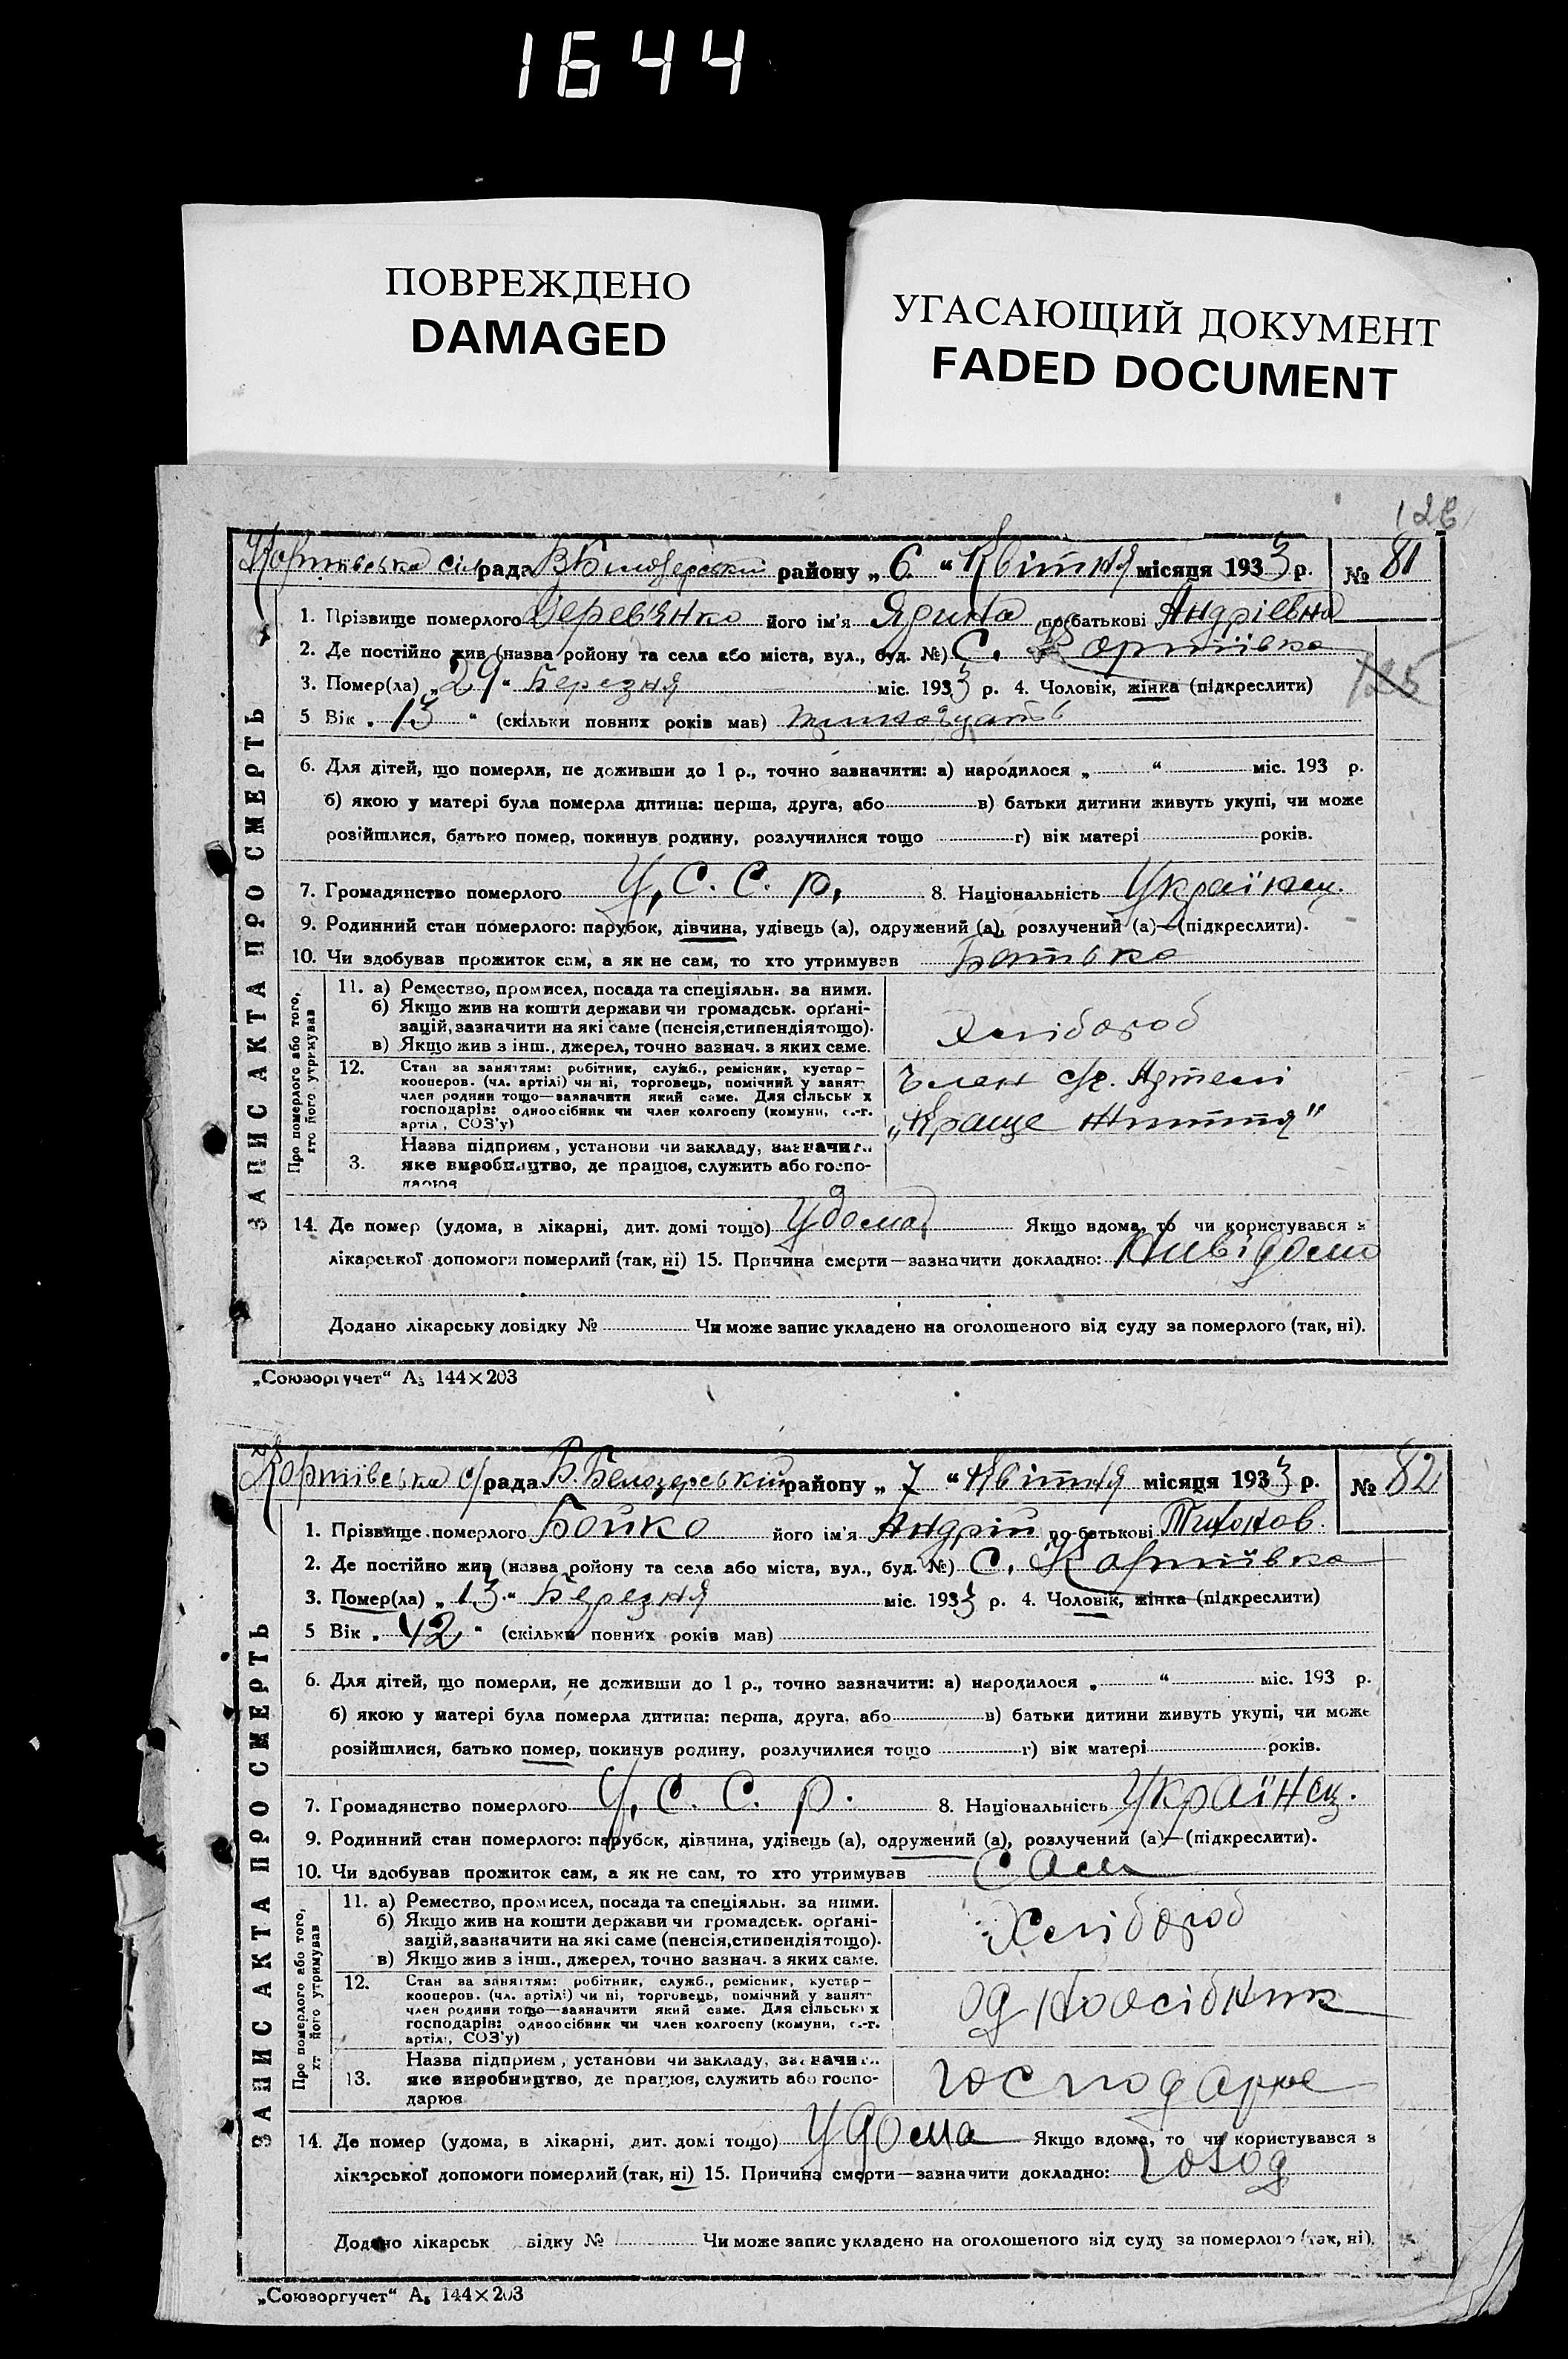 1644
ПОВРЕЖДЕНО
DAMAGED
УГАСАЮЩИЙ ДОКУМЕНТ
FADED DOCUMENT
126
ЗАПИС АКТА ПРО СМЕРТЬ
рада району „6“ Квітня місяця 1933 р. № 81
1. Прізвище померлого Дерев'янко його ім'я Ярина по батькові Андріевна
2. Де постійно жив (назва ройону та села або міста, вул., буд. №) С.
125
3. Помер(ла) „29“ Березня міс. 1933 р. 4. Чоловік, жінка (підкреслити)
5 Вік „13“ (скільки повних років мав)
6. Для дітей, що померли, не доживши до 1 р., точно зазначити: а) народилося „ “ міс. 193 р.
б) якою у матері була померла дитина: перша, друга, або в) батьки дитини живуть укупі, чи може
розійшлися, батько помер, покинув родину, розлучилися тощо г) вік матері років.
7. Громадянство померлого У. С. С. р. 8. Національність Українец.
9. Родинний стан померлого: парубок, дівчина, удівець (а), одружений (а), розлучений (а)—(підкреслити).
10. Чи здобував прожиток сам, а як не сам, то хто утримував Батько
Про померлого або того, хто його утримував
11. а) Ремество, промисел, посада та спеціяльн. за ними.
б) Якщо жив на кошти держави чи громадськ. органі-
зацій, зазначити на які саме (пенсія, стипендія тощо).
в) Якщо жив з інш., джерел, точно зазнач. з яких саме.
Хлібороб
12. Стан за заняттям: робітник, служб., ремісник, кустар-
кооперов. (чл. артілі) чи ні, торговець, помічний у занят-
член родини тощо—зазначити який саме. Для сільськ х
господарів: одноосібник чи член колгоспу (комуни, с.-г.
артіл, СОЗ'у)
Член с/г. Артелі
„Краще Життя"
3. Назва підприєм, установи чи закладу, зазначи..
яке виробництво, де працює, служить або госпо-
дарює
14. Де помер (удома, в лікарні, дит. домі тощо) Удома, Якщо вдома, то чи користувався з
лікарської допомоги померлий (так, ні) 15. Причина смерти—зазначити докладно:
Додано лікарську довідку № Чи може запис укладено на оголошеного від суду за померлого (так, ні).
„Союзоргучет“ А5 144×203
ЗАПИС АКТА ПРО СМЕРТЬ
с/рада Б. Белозерський району „7“ Квітня місяця 1933 р. № 82
1. Прізвище померлого Бойко його ім'я Андрій по батькові Тихонов.
2. Де постійно жив (назва ройону та села або міста, вул., буд. №) С.
3. Помер(ла) „13“ Березня міс. 1933 р. 4. Чоловік, жінка (підкреслити)
5 Вік „42“ (скільки повних років мав)
6. Для дітей, що померли, не доживши до 1 р., точно зазначити: а) народилося „ “ міс. 193 р.
б) якою у матері була померла дитина: перша, друга, або в) батьки дитини живуть укупі, чи може
розійшлися, батько помер, покинув родину, розлучилися тощо г) вік матері років.
7. Громадянство померлого У. С. С. р. 8. Національність Українец.
9. Родинний стан померлого: парубок, дівчина, удівець (а), одружений (а), розлучений (а)—(підкреслити).
10. Чи здобував прожиток сам, а як не сам, то хто утримував Сам
Про померлого або того, хт його утримував
11. а) Ремество, промисел, посада та спеціяльн. за ними.
б) Якщо жив на кошти держави чи громадськ. органі-
зацій, зазначити на які саме (пенсія, стипендія тощо).
в) Якщо жив з інш., джерел, точно зазнач. з яких саме.
Хлібороб
12. Стан за заняттям: робітник, служб., ремісник, кустар-
кооперов. (чл. артілі) чи ні, торговець, помічний у занят-
член родини тощо—зазначити який саме. Для сільськ х
господарів: одноосібник чи член колгоспу (комуни, с.-г.
артіл, СОЗ'у)
Одноосібник
13. Назва підприєм, установи чи закладу, зазначи..
яке виробництво, де працює, служить або госпо-
дарює
господарює
14. Де помер (удома, в лікарні, дит. домі тощо) Удома Якщо вдома, то чи користувався з
лікарської допомоги померлий (так, ні) 15. Причина смерти—зазначити докладно: голод
Додано лікарськ відку № Чи може запис укладено на оголошеного від суду за померлого (так, ні).
„Союзоргучет“ А5 144×203